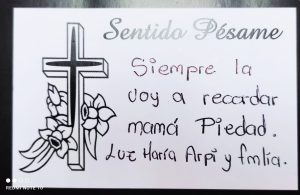 Sentido Pésame
Siempre la
voy a recordar
mamá Piedad.
Luz María Arpi y fmlia.
REDMI NOTE 10